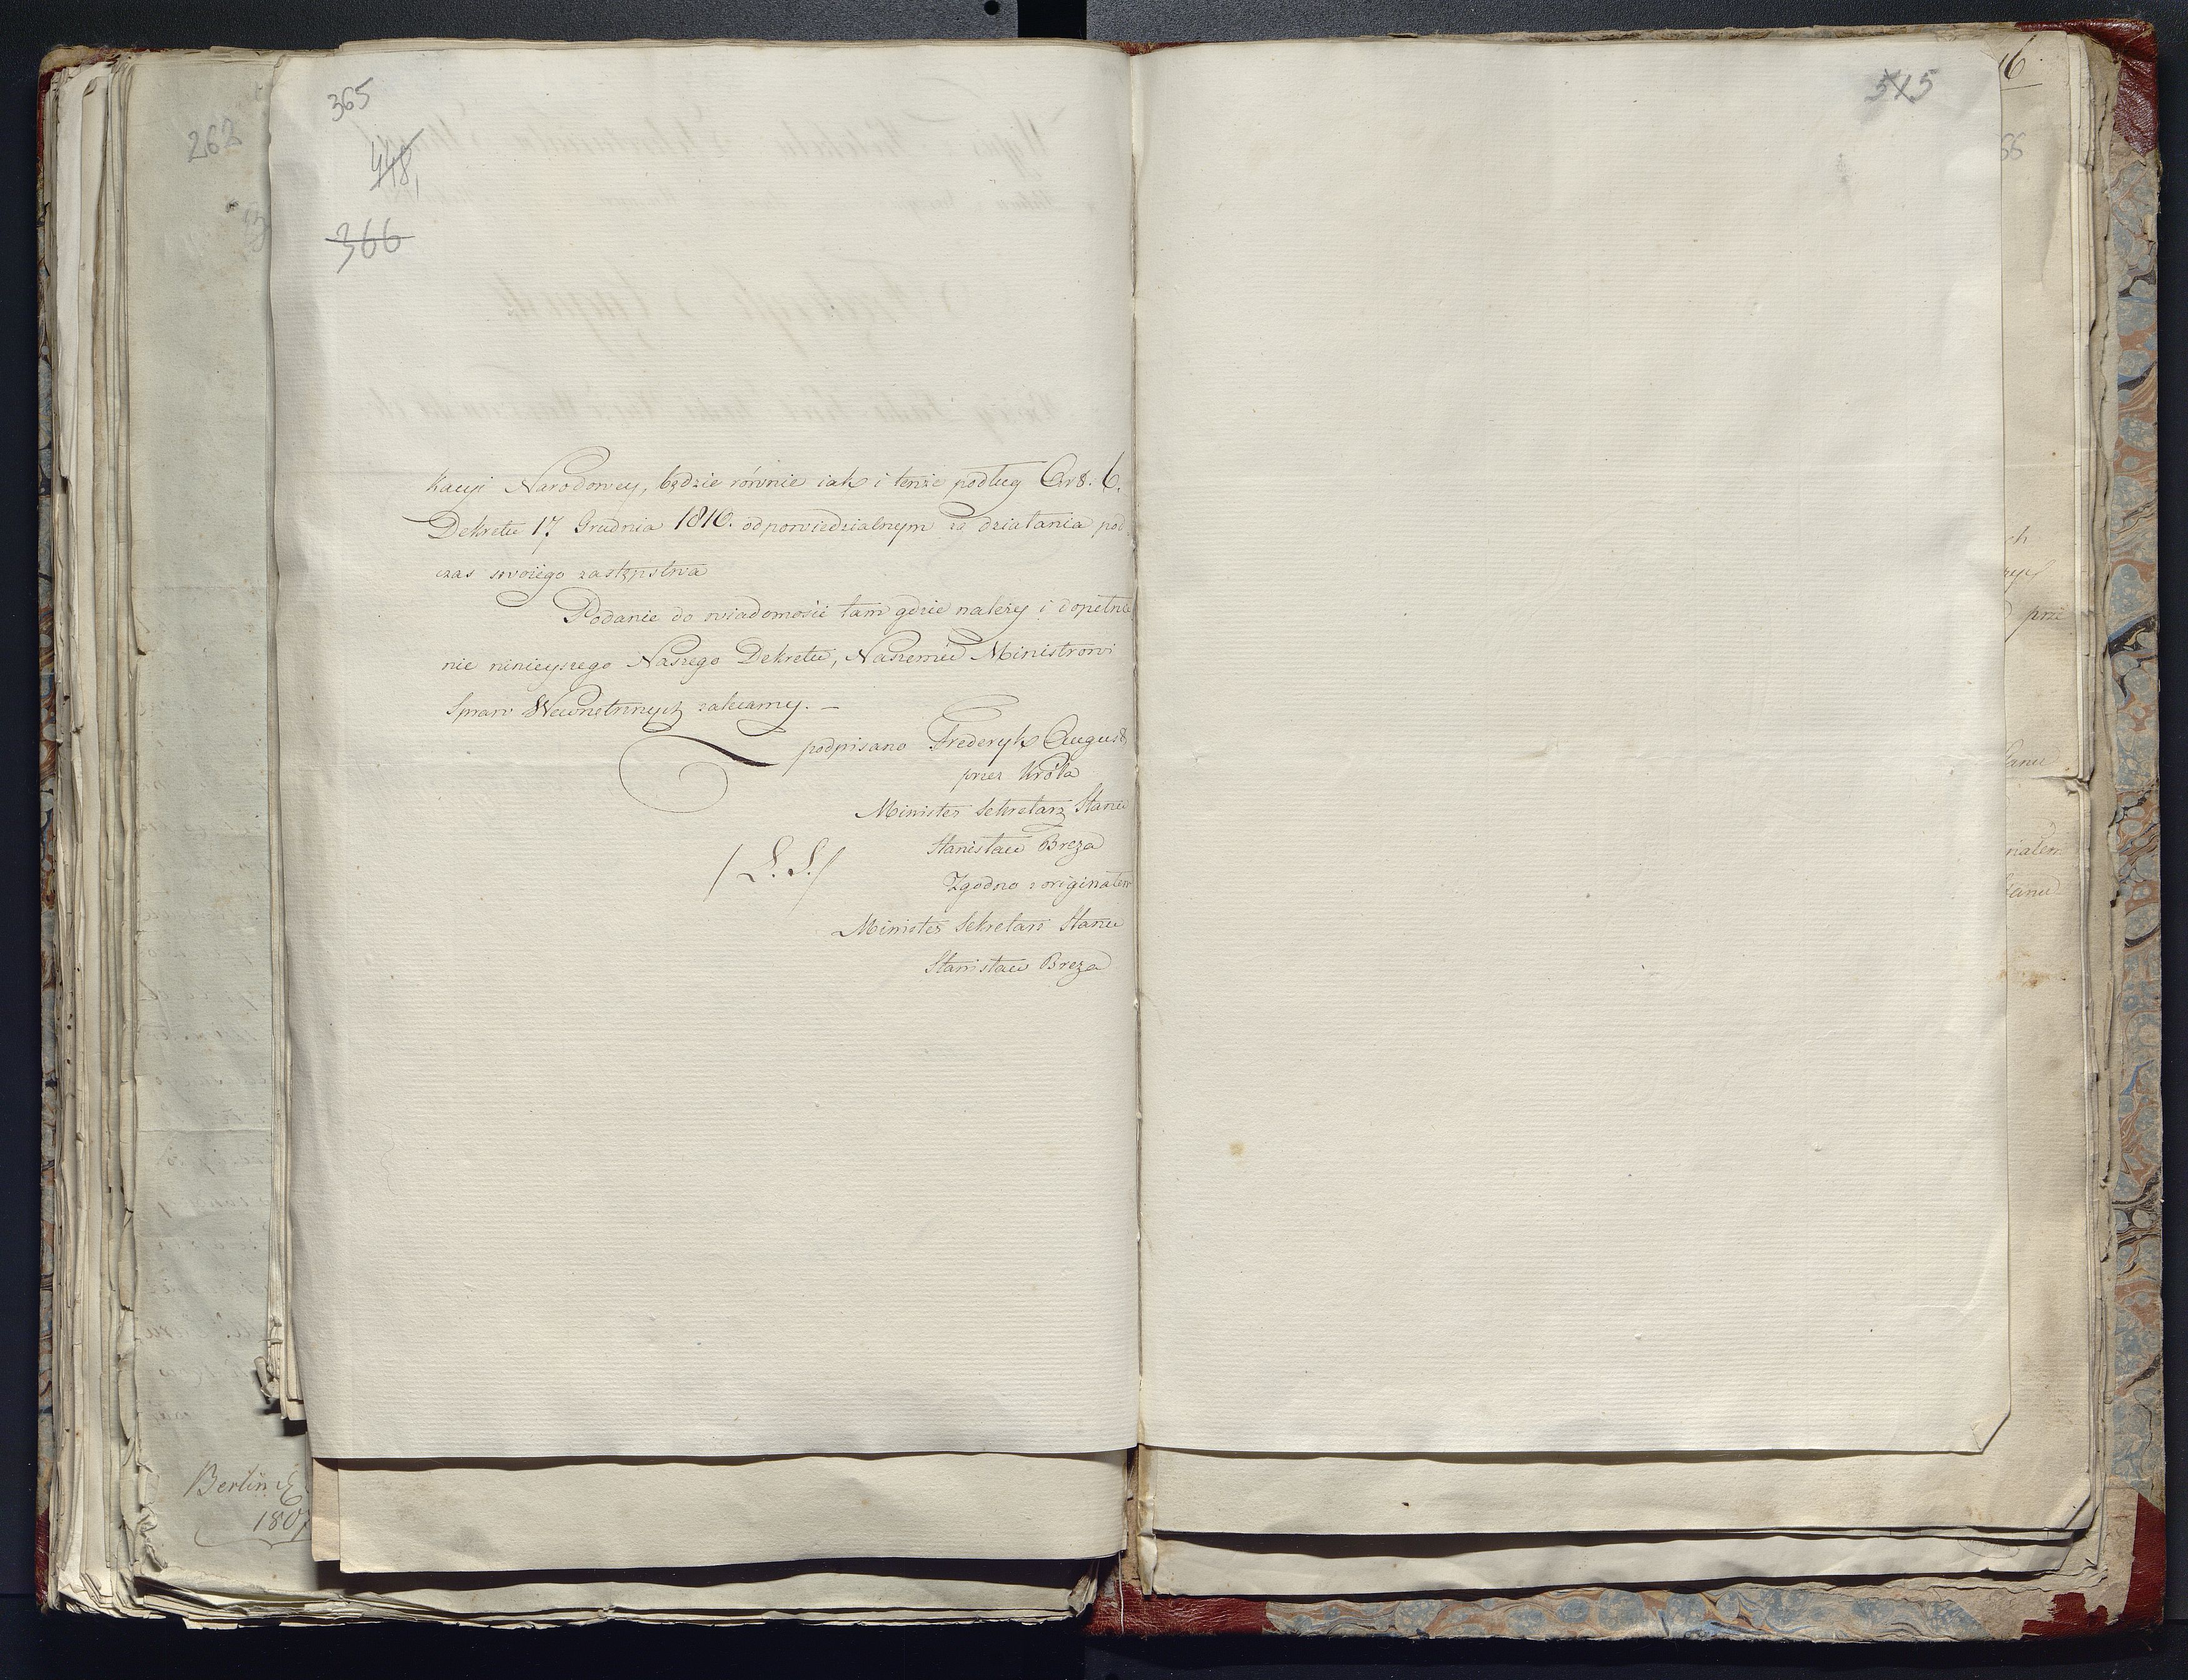 365
448,
366
262
kacyi Narodowey, będzie równie iak i tenże podług Art. 6.
Dekretu 17. Grudnia 1810. odpowiedzialnym za działania pod
czas swoiego zastępstwa
Podanie do wiadomości tam gdzie należy i dopełnie
nie ninieyszego Naszego Dekretu, Naszemu Ministrowi
Spraw Wewnętrznych zalecamy. –
podpisano Frederyk August
przez Króla
Minister Sekretarz Stanu
Stanisław Breza
/L.S./
Zgodno z originałem
Minister Sekretarz Stanu
Stanisław Breza
Berlin
180
515
16
66
prze
nałem